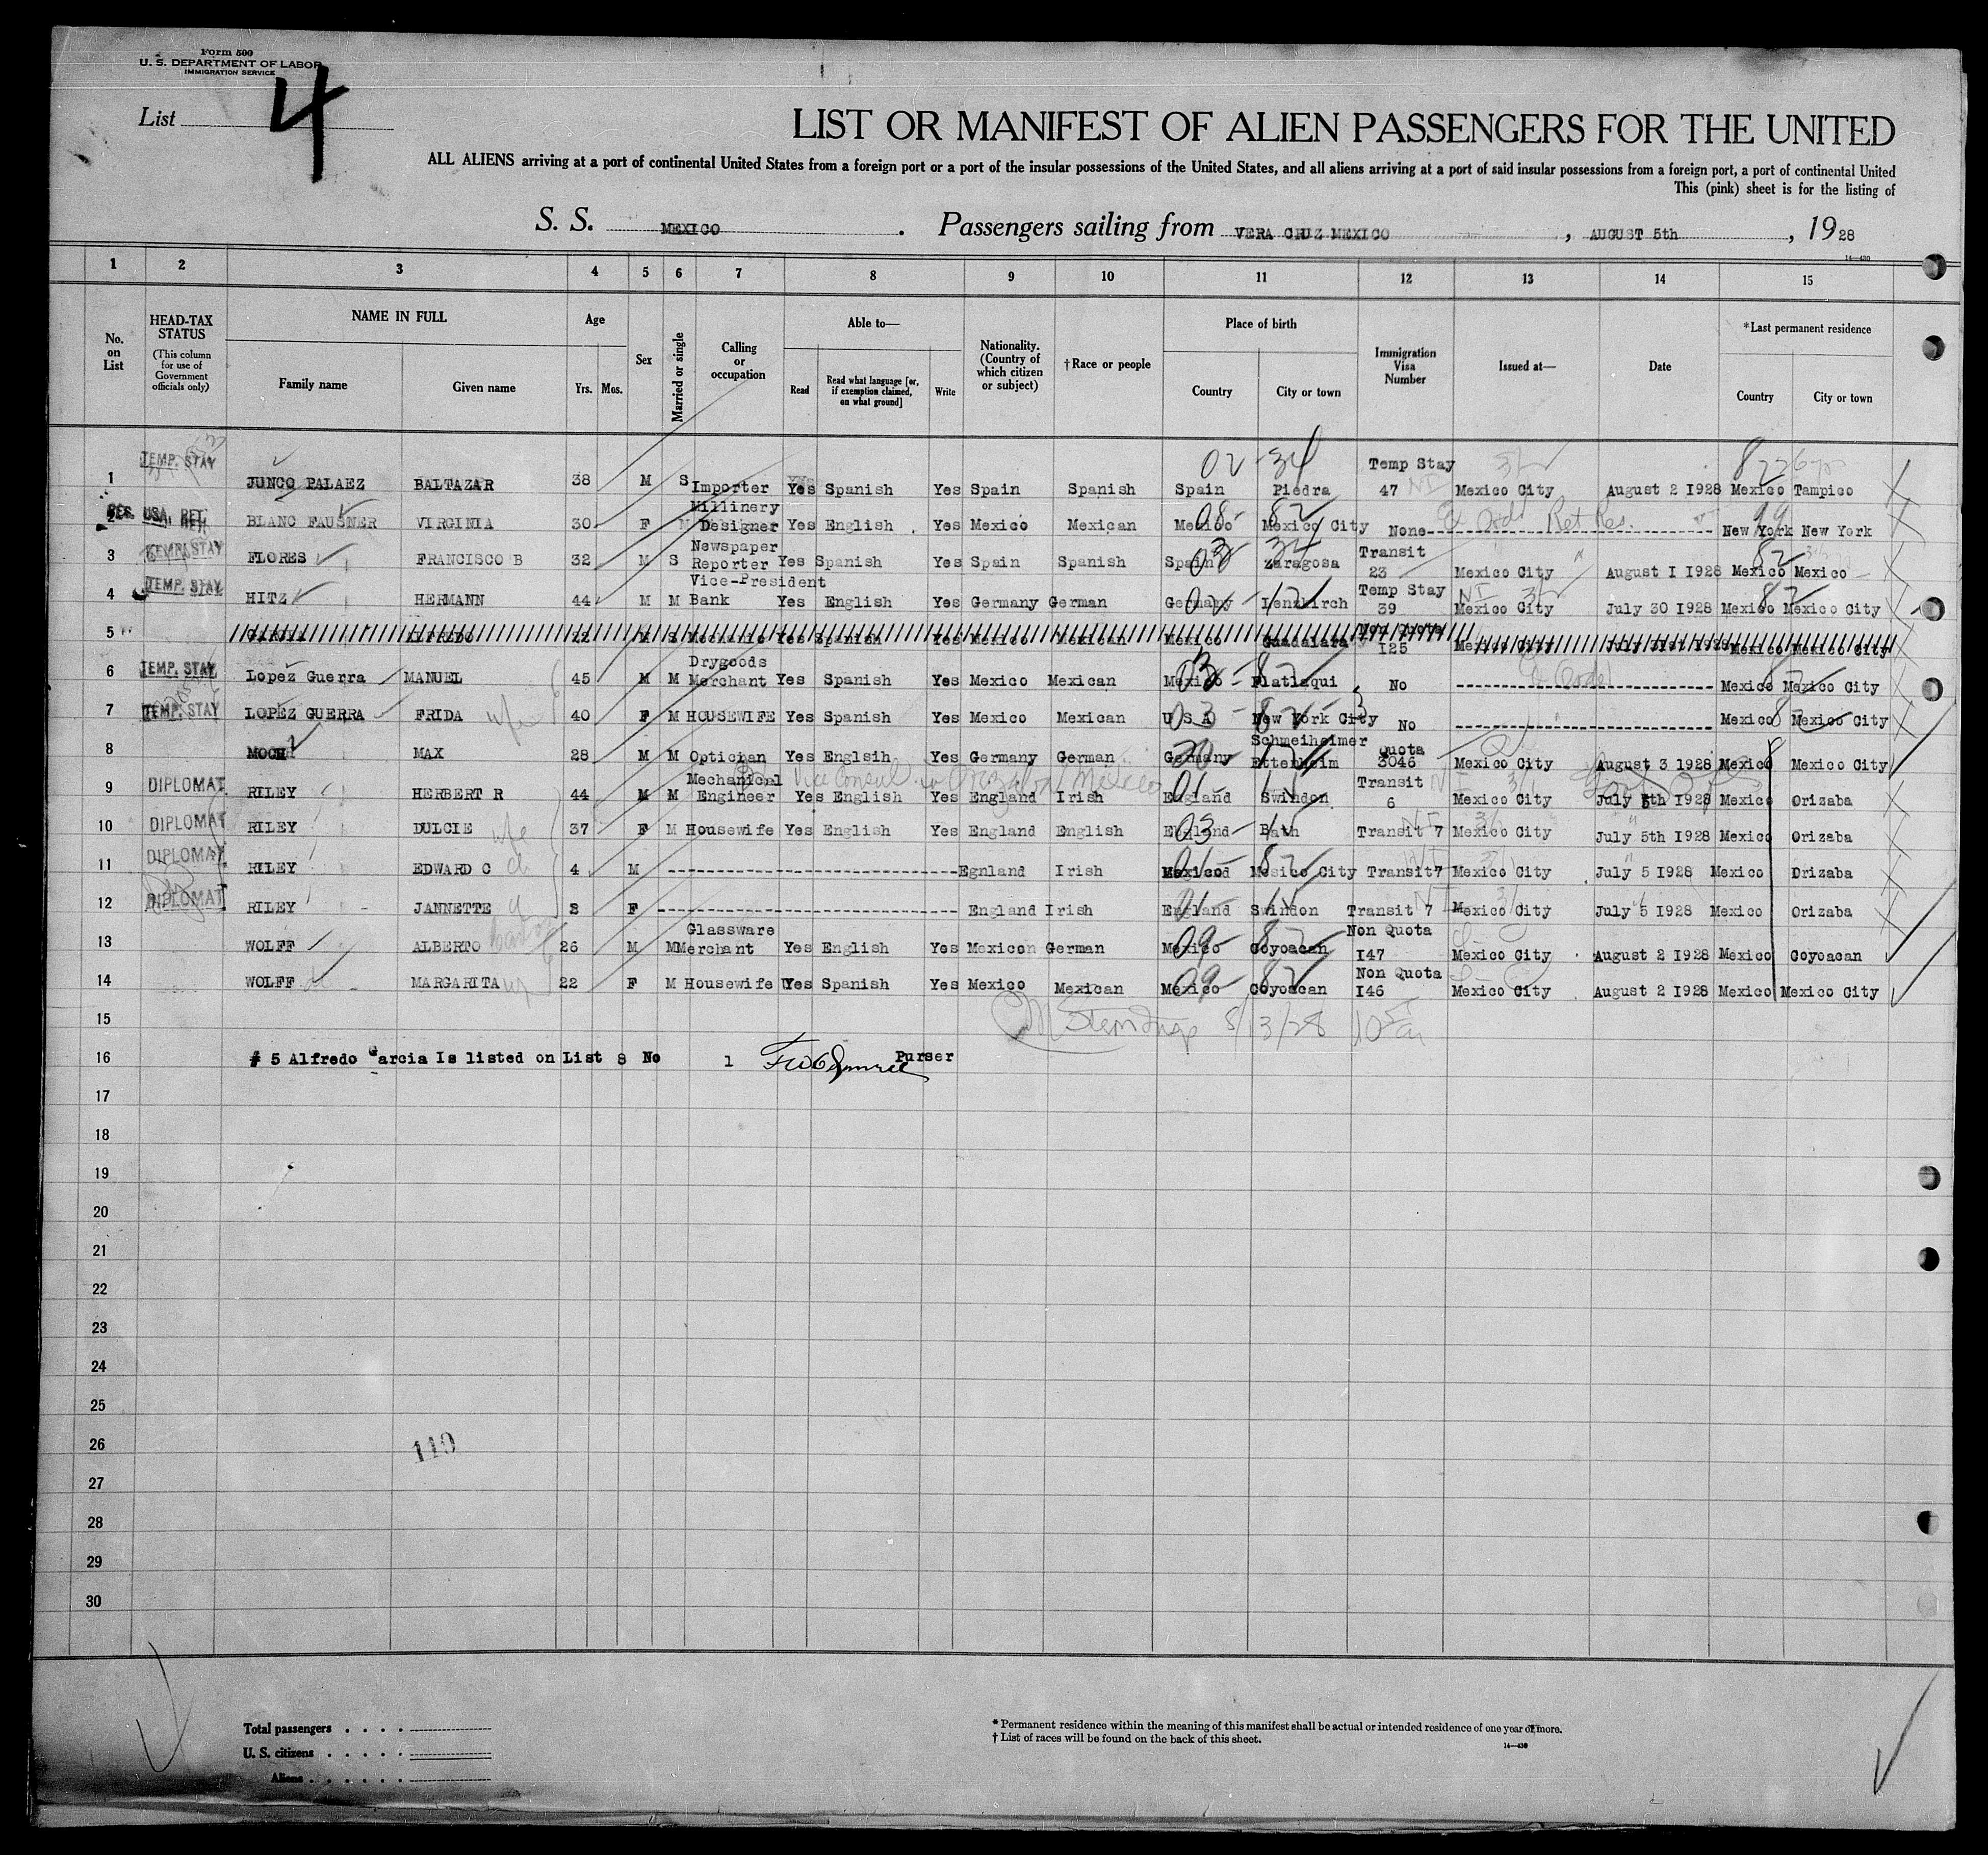 Form 500
U. S. DEPARTMENT OF LABOR
IMMIGRATION SERVICE
List 4
LIST OR MANIFEST OF ALIEN PASSENGERS FOR THE UNITED
ALL ALIENS arriving at a port of continental United States from a foreign port or a port of the insular possessions of the United States, and all aliens arriving at a port of said insular possessions from a foreign port, a port of continental United
This (pink) sheet is for the listing of
S. S. MEXICO . Passengers sailing from VERA CRUZ MEXICO , AUGUST 5th , 1928
14—430
1 2 3 4 5 6 7 8 9 10 11 12 13 14 15
No. on List
HEAD-TAX STATUS
(This column for use of Government officials only)
NAME IN FULL
Family name Given name
Age
Yrs. Mos.
Sex
Married or single
Calling or occupation
Able to—
Read Read what language [or, if exemption claimed, on what ground] Write
Nationality. (Country of which citizen or subject)
†Race or people
Place of birth
Country City or town
Immigration Visa Number
Issued at—
Date
*Last permanent residence
Country City or town
1 TEMP. STAY JUNCO PALAEZ BALTAZAR 38 M S Importer Yes Spanish Yes Spain Spanish Spain Piedra Temp Stay 47 Mexico City August 2 1928 Mexico Tampico
02 - 34
2 RES. USA. RET. BLANC FAUSNER VIRGINIA 30 F M Millinery Designer Yes English Yes Mexico Mexican Mexico Mexico City None New York New York
08- 82 Ret Res. 99
3 TEMP. STAY FLORES FRANCISCO B 32 M S Newspaper Reporter Yes Spanish Yes Spain Spanish Spain Zaragosa Transit 23 Mexico City August 1 1928 Mexico Mexico
34 82
4 TEMP. STAY HITZ HERMANN 44 M M Vice-President Bank Yes English Yes Germany German Germany Lenzkirch Temp Stay 39 Mexico City July 30 1928 Mexico Mexico City
NI 82
5 GARCIA ALFREDO 22 M S Mechanic Yes Spanish Yes Mexico Mexican Mexico Guadalara 125 Mexico City July 31st 1928 Mexico Mexico City
6 TEMP. STAY Lopez Guerra MANUEL 45 M M Drygoods Merchant Yes Spanish Yes Mexico Mexican Mexico Flatlaqui No Mexico Mexico City
7 TEMP. STAY LOPEZ GUERRA FRIDA wfe 40 F M HOUSEWIFE Yes Spanish Yes Mexico Mexican U S A New York City No Mexico Mexico City
8 MOCH MAX 28 M M Optician Yes Englsih Yes Germany German Germany Schmeiheimer Ettenheim Quota 3046 Mexico City August 3 1928 Mexico Mexico City
Vice Consul in Orizaba Mexico
9 DIPLOMAT RILEY HERBERT R 44 M M Mechanical Engineer Yes English Yes England Irish England Swindon Transit 6 Mexico City July 5th 1928 Mexico Orizaba
10 DIPLOMAT RILEY DULCIE wfe 37 F M Housewife Yes English Yes England English England Bath Transit 7 Mexico City July 5th 1928 Mexico Orizaba
11 DIPLOMAT RILEY EDWARD C 4 M Egnland Irish Mexico Mexico City Transit7 Mexico City July 5 1928 Mexico Orizaba
12 DIPLOMAT RILEY JANNETTE F England Irish England Swindon Transit 7 Mexico City July 5 1928 Mexico Orizaba
13 WOLFF ALBERTO 26 M M Glassware Merchant Yes English Yes Mexicon German Mexico Coyoacan Non Quota 147 Mexico City August 2 1928 Mexico Coyoacan
09 82
14 WOLFF MARGARITA 22 F M Housewife Yes Spanish Yes Mexico Mexican Mexico Coyoacan Non Quota 146 Mexico City August 2 1928 Mexico Mexico City
09 82
15 8/13/28
16 # 5 Alfredo Garcia Is listed on List 8 No 1 Purser
17
18
19
20
21
22
23
24
25
26 110
27
28
29
30
Total passengers . . . .
U. S. citizens . . . . .
Aliens . . . . . .
* Permanent residence within the meaning of this manifest shall be actual or intended residence of one year or more.
† List of races will be found on the back of this sheet.
14—430